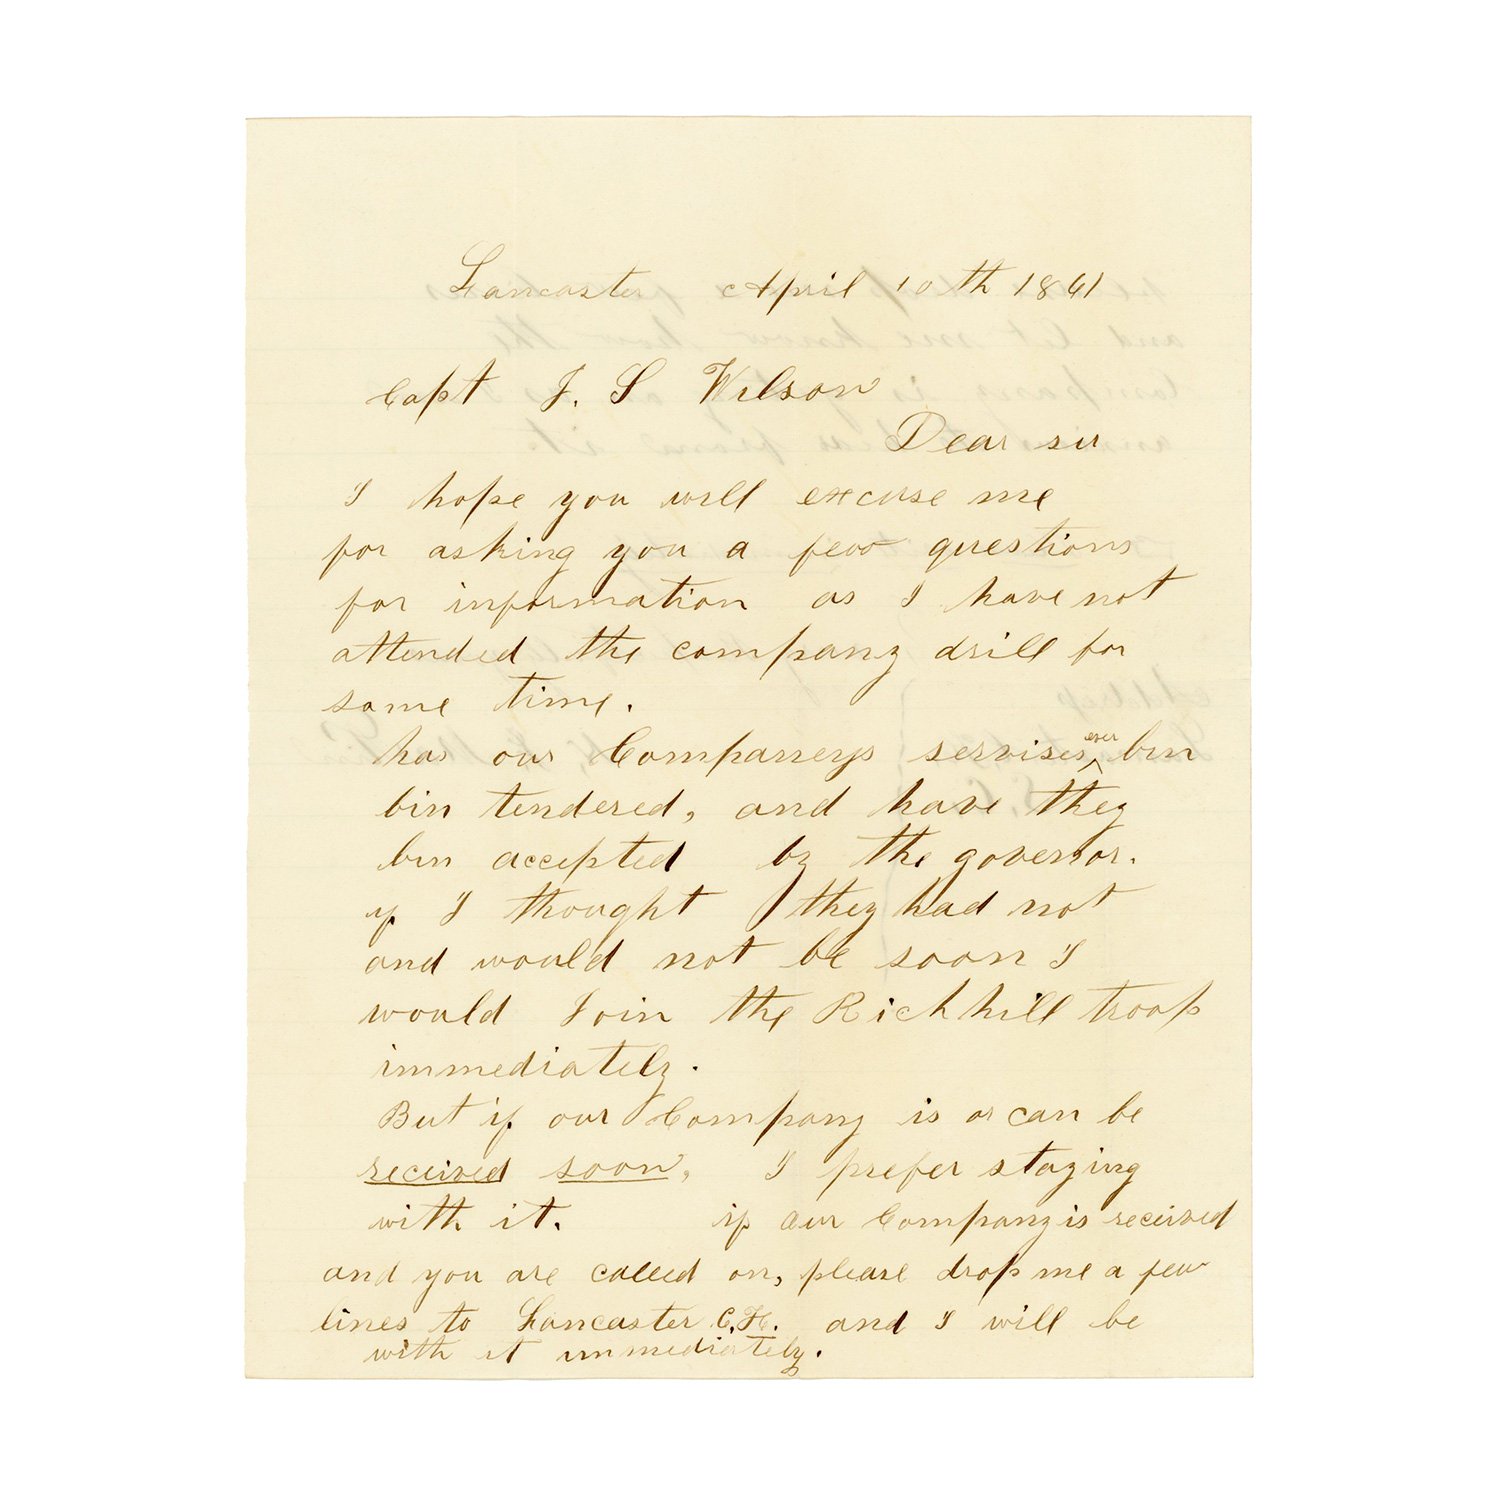 Lancaster April 10th 1861
Capt J. S Wilson
Dear sir
I hope you will excuse me
for asking you a few questions
for information as I have not
attended the company drill for
some time.
has our Companneys servises ever bin
bin tendered, and have they
bin accepted by the governor.
if I thought they had not
and would not be soon I
would Join the Rich hill troop
immediately.
But if our Company is or can be
received soon, I prefer staying
with it. if our Company is received
and you are called on, please drop me a few
lines to Lancaster C.H. and I will be
with it immediately.